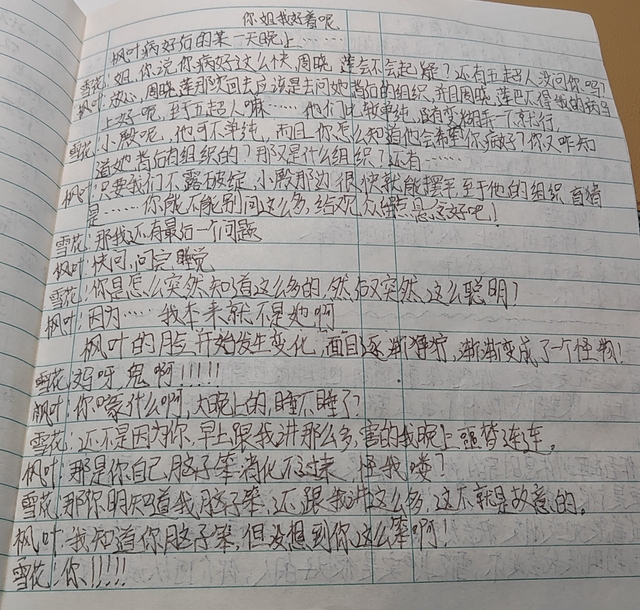 你姐我好着呢
枫叶病好后的某一天晚上……
雪花:姐,你说你病好这么快,周晓莲会不会起疑?还有五超人没问你吗?
枫叶:放心,周晓莲那次回去应该是去问她背后的组织,并且周晓莲巴不得我的病马
上好呢,至于五超人嘛……他们比较单纯,没有
雪花:小殿呢,他可不单纯,而且,你怎么知道他会希望你病好?你又咋知
道她背后的组织的?那又是什么组织?还有……
枫叶:只要我们不露破绽,小殿那边很快就能摆平,至于他的组织,首
是……你能不能别问这么多,给观众留点悬念好吧!
雪花:那我还有最后一个问题
枫叶:快问,问完睡觉
雪花:你是怎么突然知道这么多的,然后又突然这么聪明?
枫叶:因为……我本来就不是她啊
枫叶的脸开始发生变化,面目逐渐狰狞,渐渐变成了一个怪物!
雪花:妈呀,鬼啊!!!!!
枫叶:你嚎什么啊,大晚上的,睡不睡了?
雪花:还不是因为你,早上跟我讲那么多,害的我晚上噩梦连连。
枫叶:那是你自己脑子笨,消化不过来,怪我喽?
雪花:那你明知道我脑子笨,还跟我讲这么多,这不就是故意的。
枫叶:我知道你脑子笨,但没想到你这么笨啊!
雪花:你!!!!!